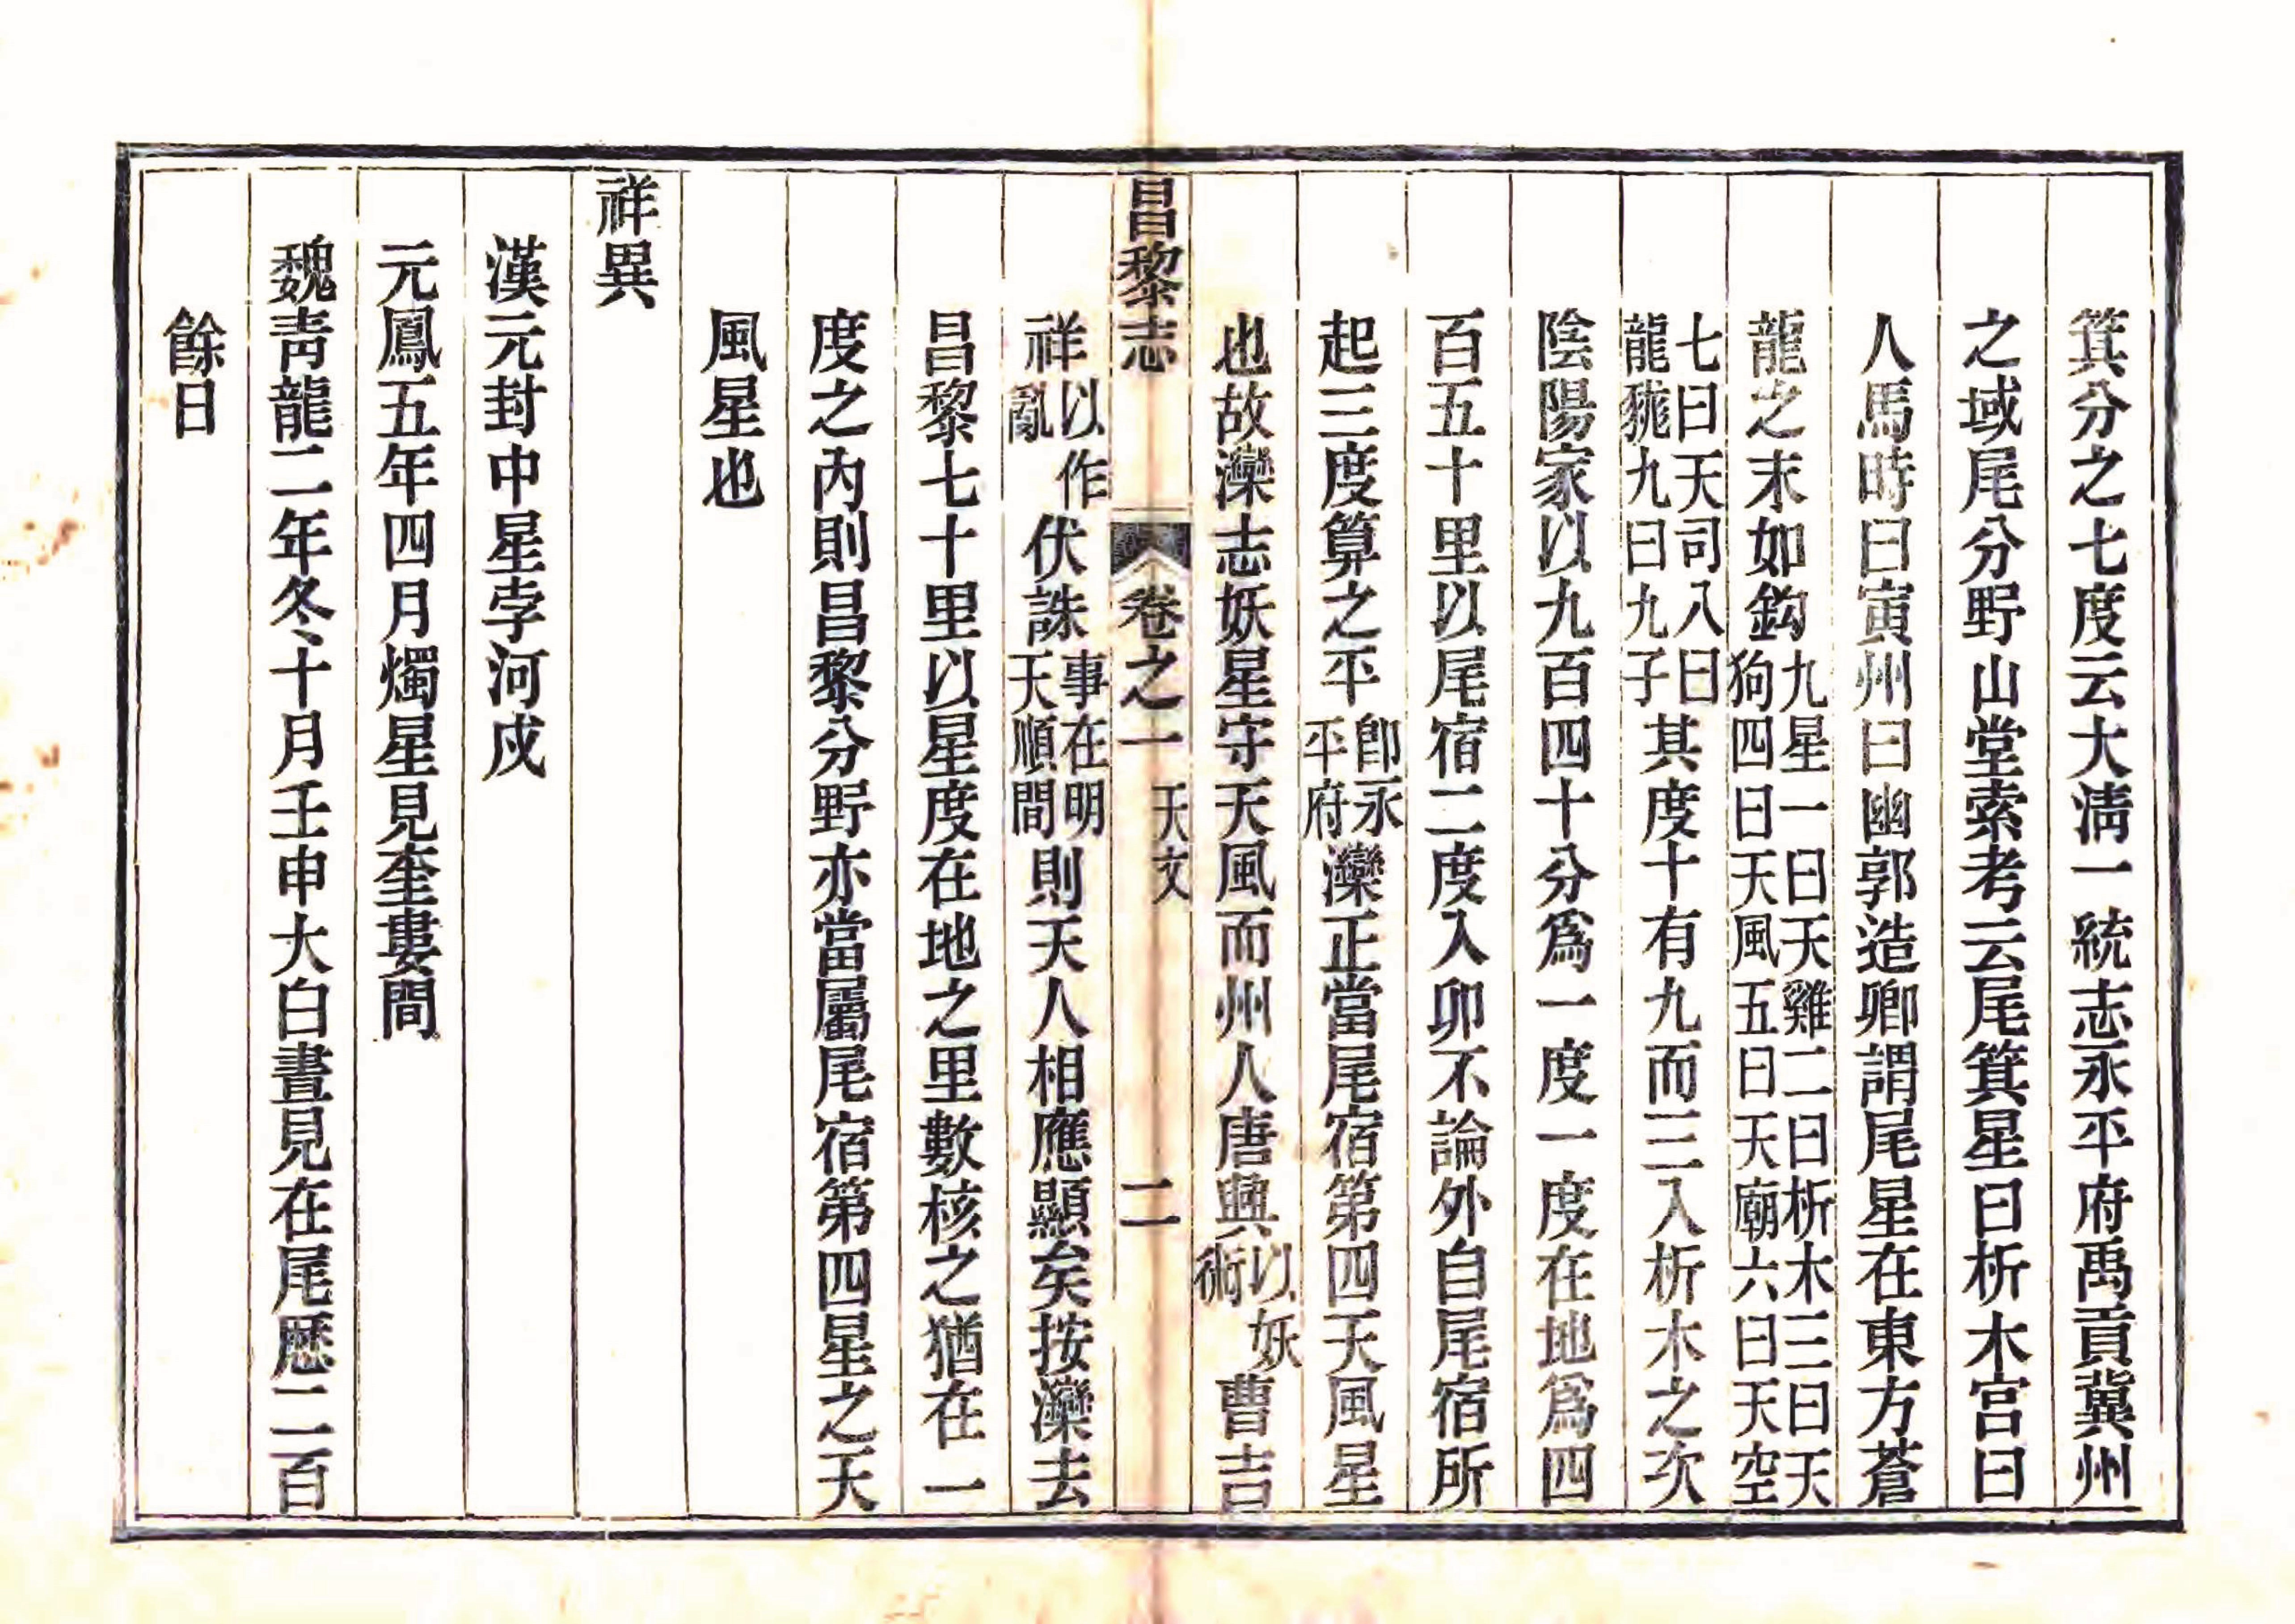 箕分之七度云大淸一統志永平府禹貢冀州
之域尾分野山堂索考云尾箕星曰析木宫曰
人馬時曰寅州曰幽郭造卿謂尾星在東方蒼
龍之末如鈎九星一曰天雞二曰析木三曰天狗四曰天風五曰天廟六曰天空
七曰天司八曰龍㺸九曰九子其度十有九而三入析木之次
陰陽家以九百四十分爲一度一度在地爲四
百五十里以尾宿二度入卯不論外自尾宿所
起三度算之平卽永平府灤正當尾宿第四天風星
也故灤志妖星守天風而州人唐興以妖術曹吉
昌黎志 卷之一 天文 二
祥以作亂伏誅事在明天順間則天人相應顯矣按灤去
昌黎七十里以星度在地之里數核之猶在一
度之內則昌黎分野亦當屬尾宿第四星之天
風星也
祥異
漢元封中星孛河戍
元鳳五年四月燭星見奎婁間
魏靑龍二年冬十月壬申大白晝見在尾歷二百
餘日